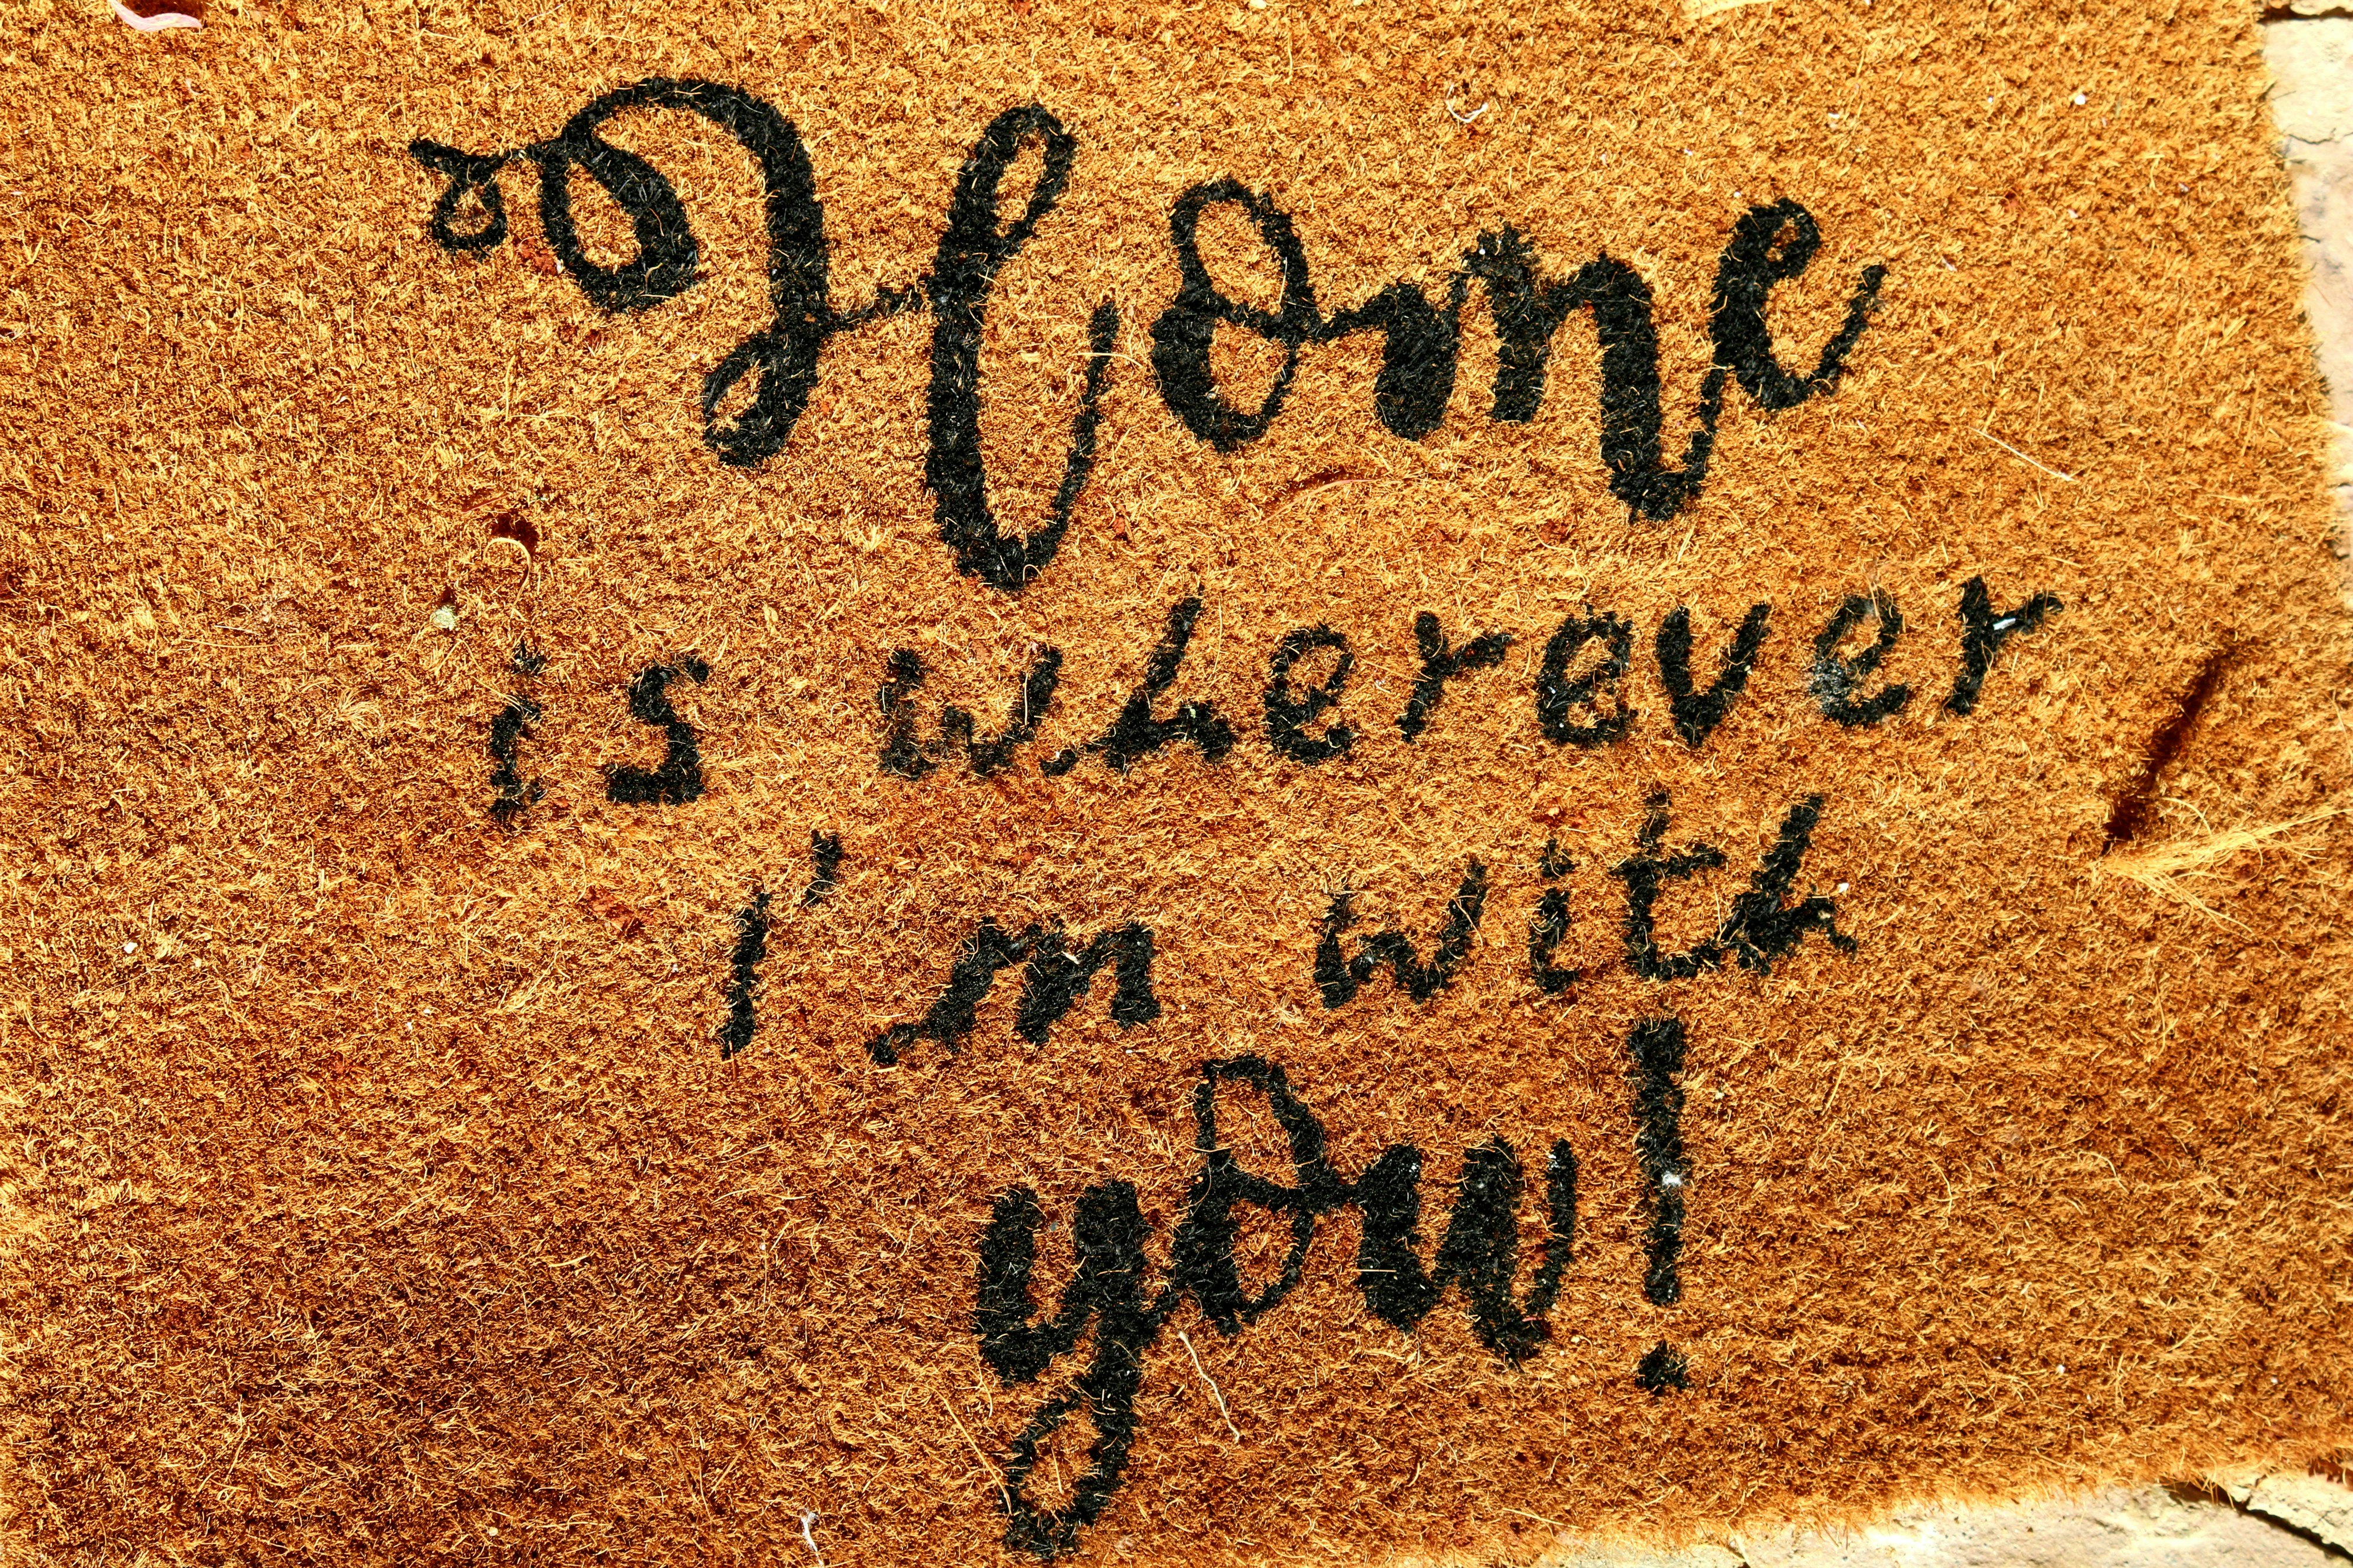 Home
is wherever
I'm with
you!